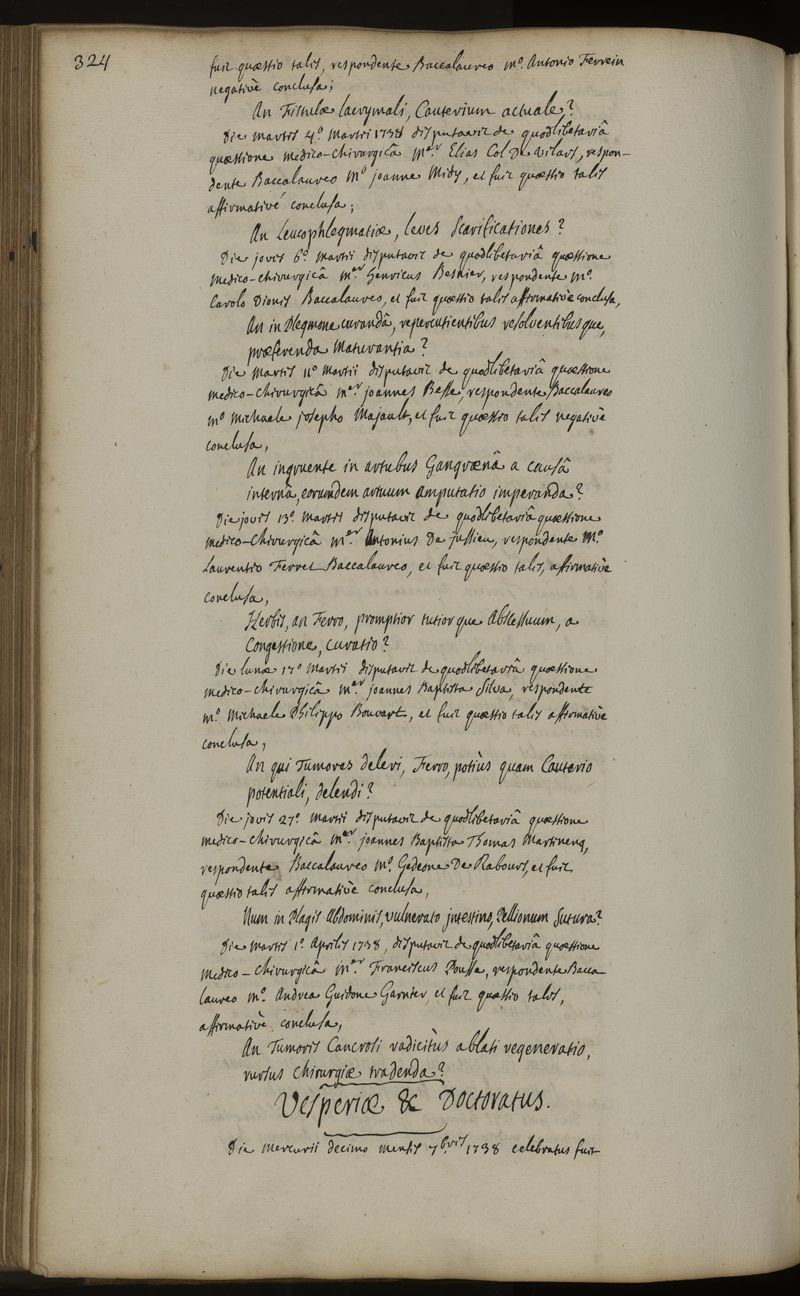 324
fuit quæstio talis, respondente Baccalaureo m.º Antonio Ferrein
negativè conclusa;
An Fistulæ lacrymali, Cauterium actuale?
Die martis 4.º martii 1738 disputavit de quodlibetariâ
quæstione medico-chirurgicâ m.er Elias Col De vilars, respon-
dente Baccalaureo m.º joanne Midy, et fuit quæstio talis
affirmativé conclusa;
An Leucophlegmatiæ, leves Scarificationes?
Die jovis 6.º martii disputavit de quodlibetariâ quæstione
medico-chirurgicâ m.er Henricus Besnier, respondente m.º
Carolo Dionis Baccalaureo, et fuit quæstio talis affirmativè conclusa,
An in Plegmone curandâ, repercutientibus resolventibusque,
præferenda Maturantia?
Die Martis 11.º Martii disputavit de quodlibetariâ quæstione
medico-chirurgicâ m.er joannes Besse, respondente Baccalaureo
m.º michaele josepho Majault, et fuit quæstio talis negativè
conclusa,
An ingruente in artubus Gangrænâ a causâ
internâ, eorumdem artuum amputatio imperanda?
Die jovis 13.º Martii disputavit de quodlibetariâ quæstione
medico-chirurgicâ m.er Antonius De jussieu, respondente M.º
Laurentio Ferret Baccalaureo, et fuit quæstio talis, affirmativè
conclusa,
Herbis, an Ferro, promptior tutiorque Abscessuum, a
Congestione, curatio?
Die lunæ 17.º Martii disputavit de quodlibetariâ quæstione
medico-chirurgicâ m.er joannes Baptista Silva, respondente
m.º Michaele Philippo Bouvart, et fuit quæstio talis affirmativè
conclusa,
An qui Tumores deleri, Ferro, potiùs quam Cauterio
potentiali, delendi?
Die jovis 27.º martii disputavit de quodlibetariâ quæstione
medico-chirurgicâ m.er joannes Baptista Thomas Martinenq,
respondente Baccalaureo m.º Gedeone De Rabours, et fuit
quæstio talis affirmativè conclusa,
Num in Plagis Abdominis, vulnerato jntestino, Pellionum Sutura?
Die martis 1.º Aprilis 1738, disputavit de quodlibetariâ quæstione
medico-chirurgicâ m.er Franciscus Pousse, respondente Bacca
laureo m.º Andrea Guidone Garnier, et fuit quæstio talis,
affirmativè conclusa,
An Tumoris Cancrosi radicitùs ablati regeneratio,
rursus chirurgiæ tradenda?
Vesperiæ & Doctoratus.
Die mercurii decimo mensis 7bris 1738 celebratus fuit